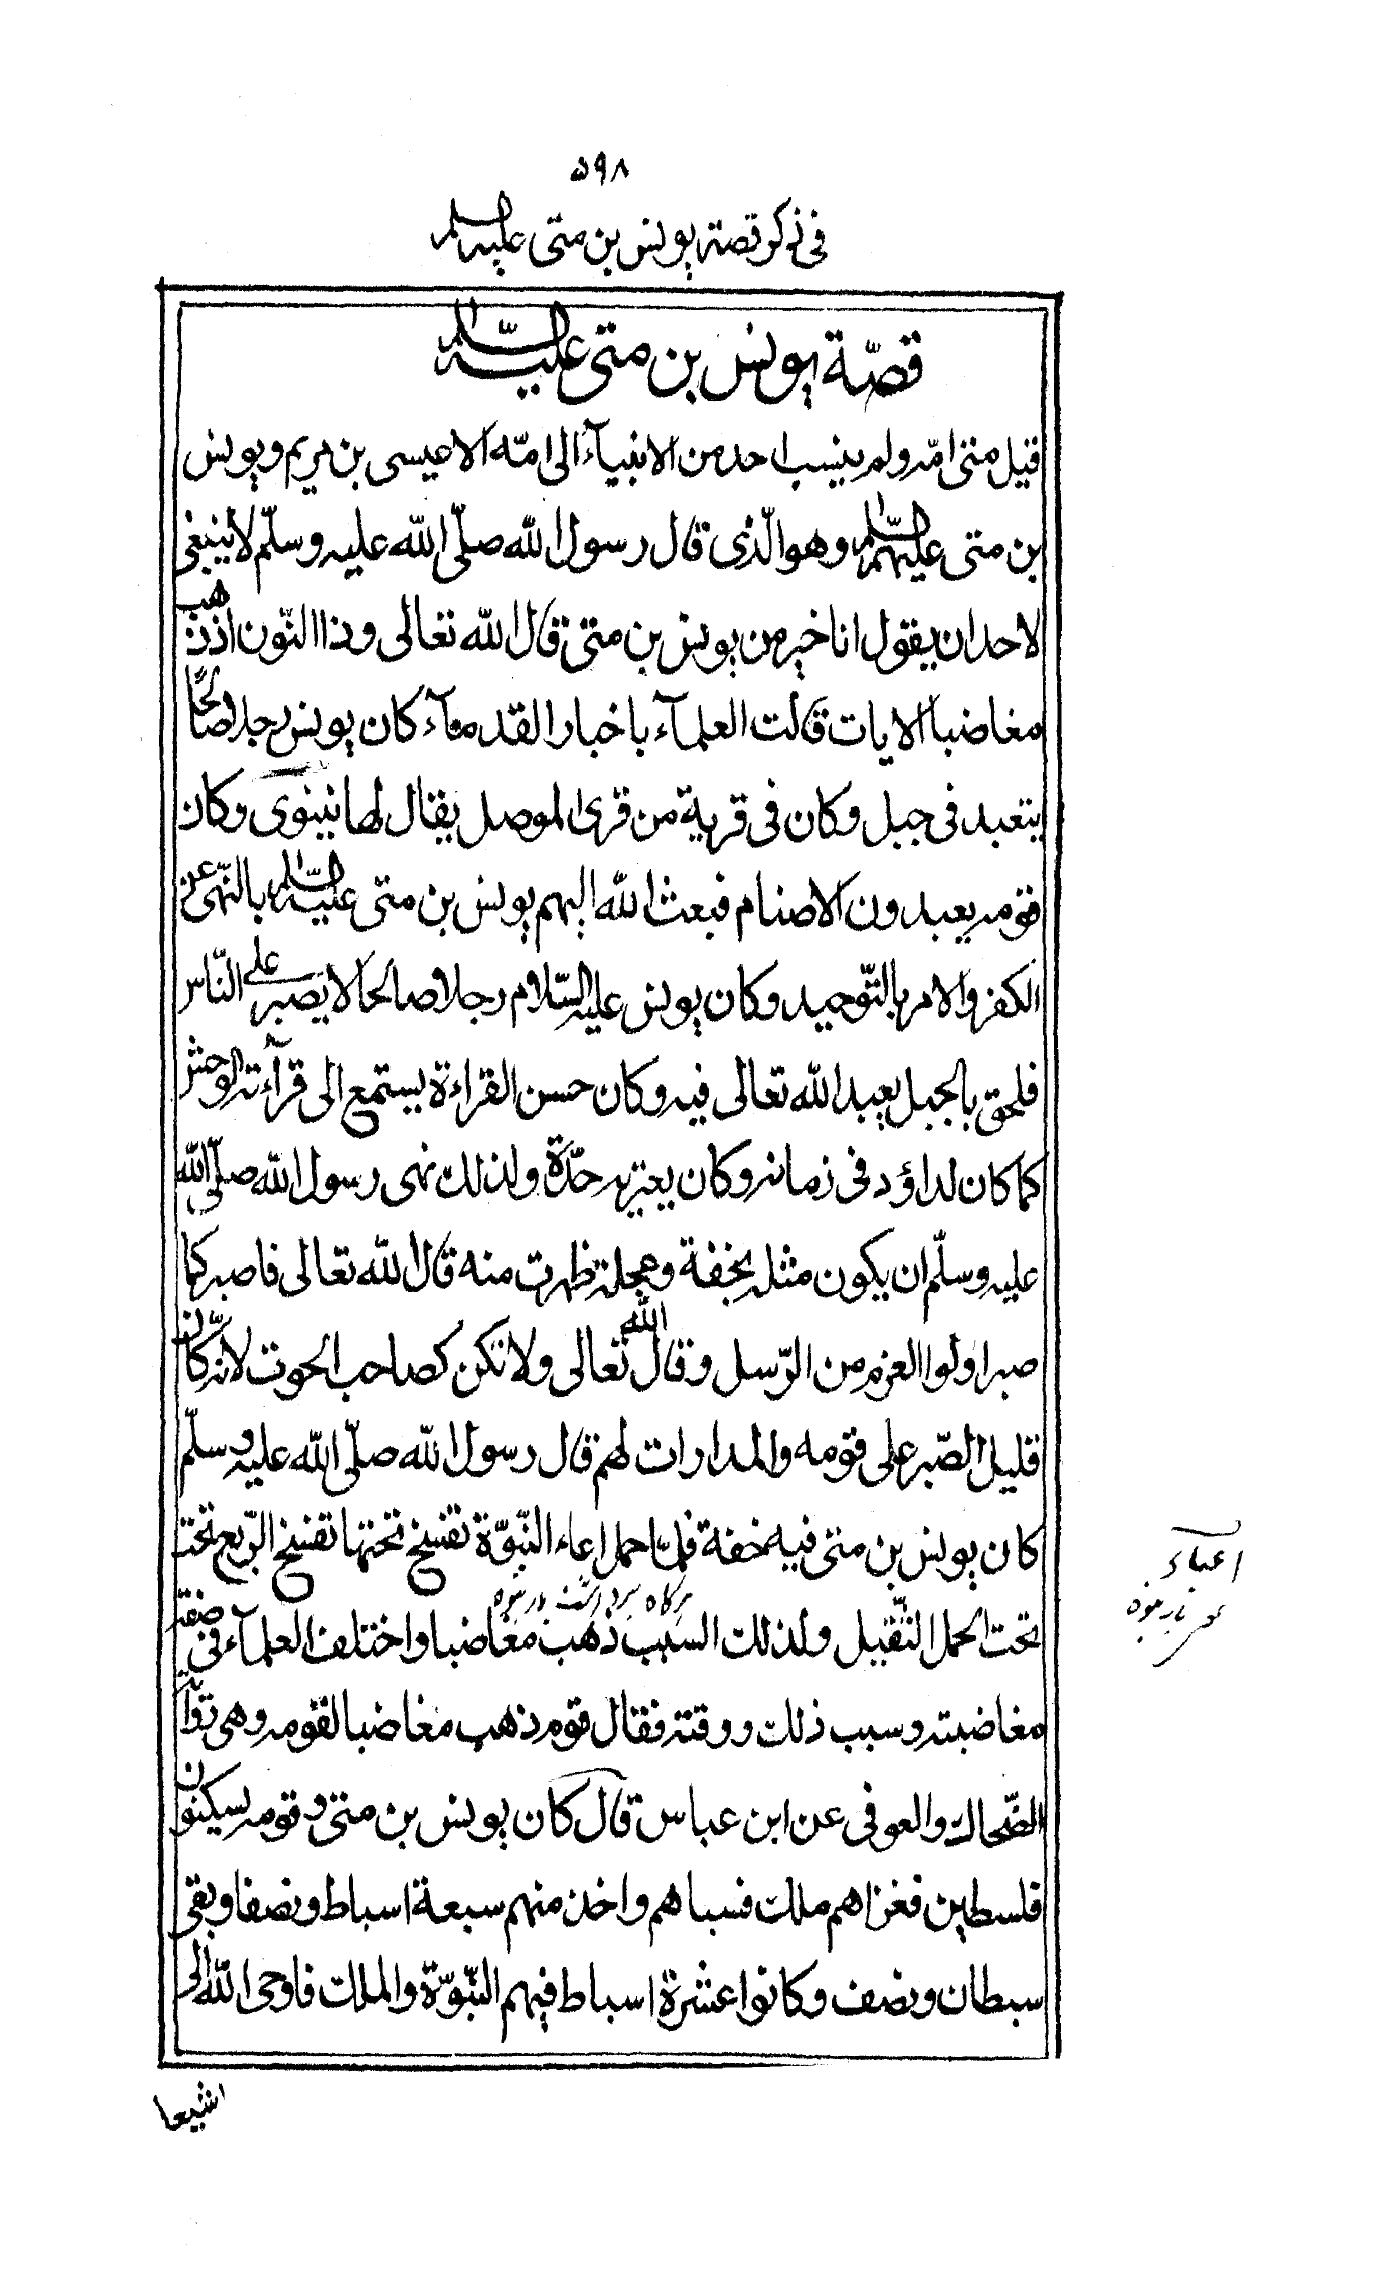 ۵۹۸
فی ذکر قصة یونس بن متی علیه السلم
قصّة یونس بن متی علیه السّلم
قیل متی امّه ولم ینسب احد من الانبیآء الی امّه الا عیسی بن مریم ویونس
بن متی علیهم السّلم وهو الّذی قال رسول الله صلّی الله علیه وسلّم لا ینبغی
لاحد ان یقول انا خیر من یونس بن متی قال الله تعالی وذا النّون اذ ذهب
مغاضبا الایات قالت العلمآء باخبار القدمآء کان یونس رجلا صالحًا
یتعبد فی جبل وکان فی قریة من قری الموصل یقال لها نینوی وکان
قومه یعبدون الاصنام فبعث الله الیهم یونس بن متی علیه السّلم بالنّهی عن
الکفر والامر بالتّوحید وکان یونس علیه السّلام رجلا صالحا لا یصبر علی النّاس
فلحق بالجبل یعبد الله تعالی فیه وکان حسن القراءة یستمع الی قرآءته الوحش
کما کان لداؤد فی زمانه وکان یعتریه حدّة ولذلك نهی رسول الله صلّی الله
علیه وسلّم ان یکون مثله بخفة وعجلة ظهرت منه قال الله تعالی فاصبر کما
صبر اولوا العزم من الرّسل وقال الله تعالی ولا تکن کصاحب الحوت لانّه کان
قلیل الصّبر علی قومه والمدارات لهم قال رسول الله صلّی الله علیه وسلّم
کان یونس بن متی فیه خفة فلمّا حمل اعاء النّبوّة تفسخ تحتها تفسخ الرّبع تحت
تحت الحمل الثّقیل ولذلك السبب ذهب مغاضبا واختلف العلمآء فی صفة
مغاضبته وسبب ذلك ووقته فقال قوم ذهب مغاضبا لقومه وهی روایة
الضّحاك والعوفی عن ابن عباس قال کان یونس بن متی وقومه یسکنون
فلسطین فغزاهم ملك فسباهم واخذ منهم سبعة اسباط ونصفا وبقی
سبطان ونصف وکانوا عشرة اسباط فیهم النّبوّة والملك فاوحی الله الی
اشیعا
اعباء